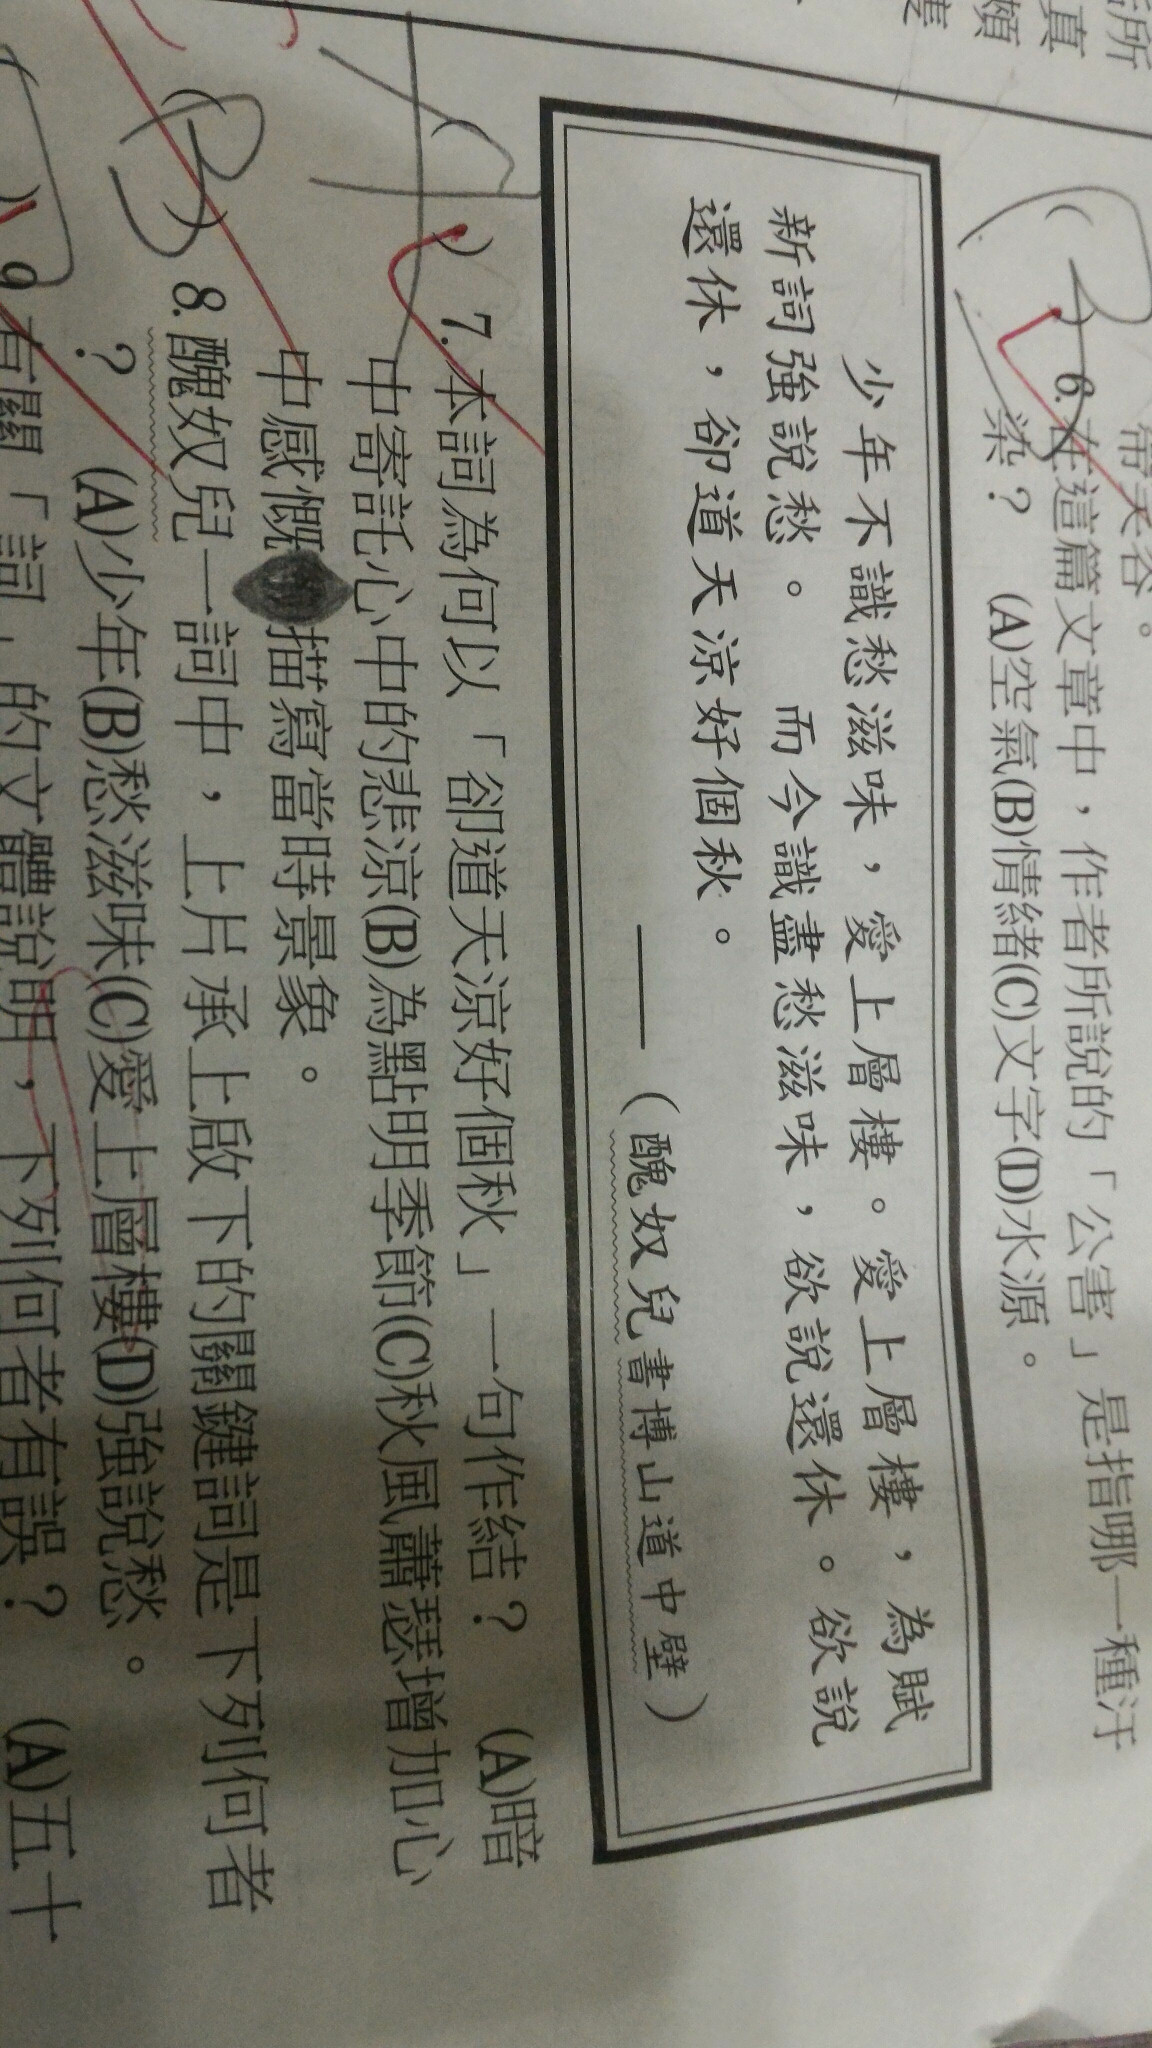 常笑容。
6.在這篇文章中，作者所說的「公害」是指哪一種汙
染？ (A)空氣(B)情緒(C)文字(D)水源。
少年不識愁滋味，愛上層樓。愛上層樓，為賦
新詞強說愁。 而今識盡愁滋味，欲說還休。欲說
還休，卻道天涼好個秋。
——（醜奴兒書博山道中壁）
( A ) 7.本詞為何以「卻道天涼好個秋」一句作結？ (A)暗
中寄託心中的悲涼(B)為點明季節(C)秋風蕭瑟增加心
中感慨 描寫當時景象。
( B ) 8.醜奴兒一詞中，上片承上啟下的關鍵詞是下列何者
？ (A)少年(B)愁滋味(C)愛上層樓(D)強說愁。
9.有關「詞」的文體說明，下列何者有誤？ (A)五十